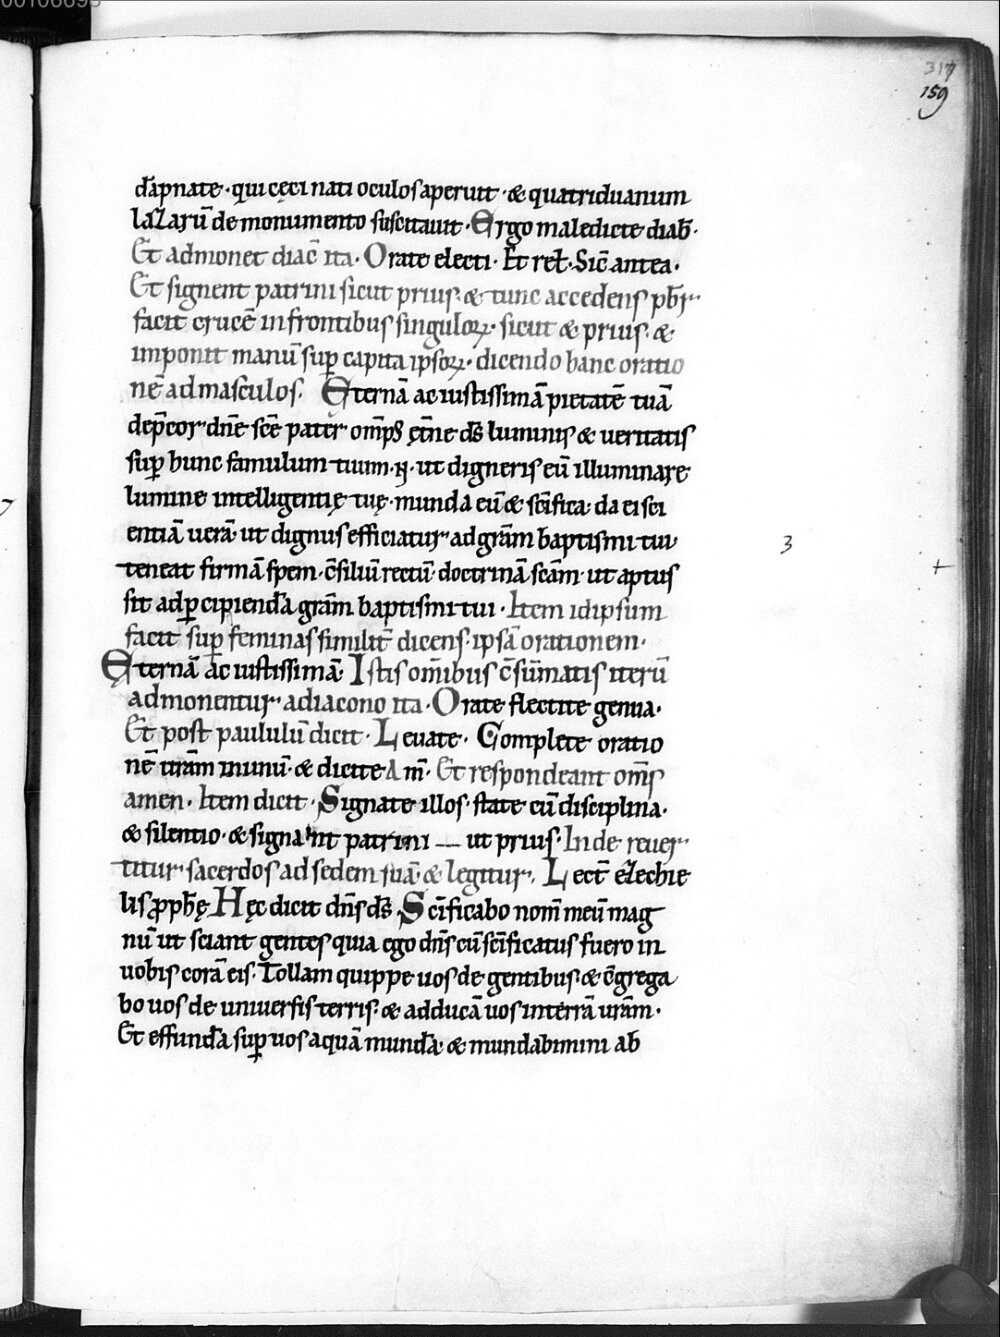 317
159
da̅pnate · qui cęci nati oculos aperuit · & quatriduanum
lazaru̅ de monumento suscitauit · Ergo maledicte diab̅ ·
Et admonet diac̅ ita · Orate electi · Et rel̅ · Sic̅ antea ·
Et signent patrini sicut prius · & tunc accedens pb̅r
facit cruce̅ in frontibus singuloꝝ · sicut & prius · &
imponit manu̅ sup̅ capita ipsoꝝ · dicendo hanc oratio
ne̅ ad masculos · Eterna̅ ac iustissima̅ pietate̅ tua̅
dep̅cor dn̅e sc̅e pater om̅ps ęt̅ne ds̅ luminis & ueritatis
sup̅ hunc famulum tuum · N · ut digneris eu̅ illuminare
lumine intelligentię tuę · munda eu̅ & sc̅ifica · da ei sci
entia̅ uera̅ · ut dignus efficiatur ad gra̅m baptismi tui ·
teneat firma̅ spem · c̅siliu̅ rectu̅ · doctrina̅ sca̅m · ut aptus
sit ad p̲cipienda̅ gra̅m baptismi tui · Item id ipsum
facit sup̅ feminas similit̅ dicens · ipsa̅ orationem ·
3
Eterna̅ ac iustissima̅ · Istis om̅ibus c̅su̅matis iteru̅
admonentur a diacono ita · Orate flectite genua ·
Et post paululu̅ dicit · Leuate · Complete oratio
ne̅ ura̅m in unu̅ · & dicite Am̅ · Et respondeant om̅s
amen · Item dicit · Signate illos · state cu̅ disciplina ·
& silentio · & signant patrini — ut prius · Inde reuer
titur sacerdos ad sedem sua̅ & legitur · Lect̅ ezechie
lis ꝓphe̅ Hęc dicit dn̅s ds̅ · Sc̅ificabo nom̅ meu̅ mag
nu̅ ut sciant gentes quia ego dn̅s cu̅ sc̅ificatus fuero in
uobis cora̅ eis · Tollam quippe uos de gentibus · & c̅grega
bo uos de uniuersis terris · & adduca̅ uos in terra̅ ura̅m ·
Et effunda̅ sup̅ uos aqua̅ munda̅ · & mundabimini ab